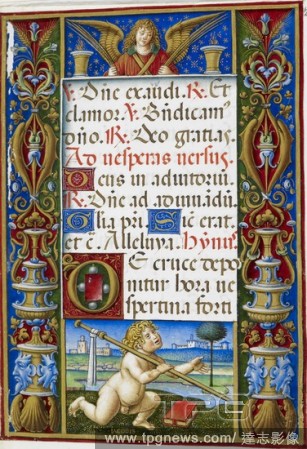 V. Dñe exaudi. R. Et
clamor. V. Bñdicam⁹
dño. R. Deo gratias.
Ad vesperas versus.
Deus in adiutoriũ.
R. Dñe ad adiuuãdũ.
Glia pri. Sic erat.
et c̃. Alleluya. Hỹnus.
De cruce depo
nitur hora ve
spertina forti
TPG
www.tpgnews.com/達志影像